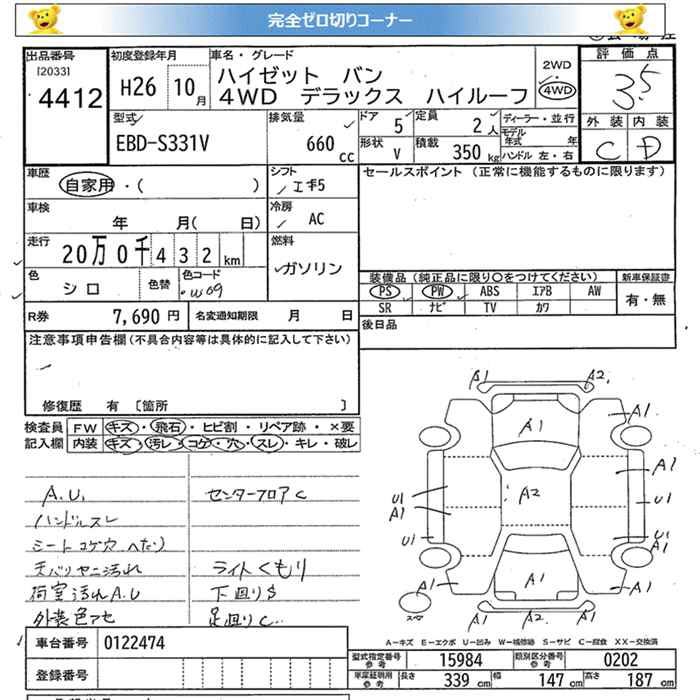 完全ゼロ切りコーナー
出品番号
[2033]
4412
初度登録年月
H26 10月
車名・グレード
ハイゼット バン
4WD デラックス ハイルーフ
2WD
4WD
評価点
3.5
外装 内装
C D
型式
EBD-S331V
排気量
660 cc
ドア 5
定員 2人
形状 V
積載 350 kg
ディーラー・並行
モデル年式 年
ハンドル 左・右
車歴
自家用・( )
シフト
冷房
AC
車検
年 月( 日)
走行
20万0千432km
燃料
ガソリン
色
シロ
色替
色コード
W09
R券 7,690円
名変通知期限 月 日
セールスポイント (正常に機能するものに限ります)
装備品 (純正品に限り○をつけてください)
新車保証書
PS PW ABS エアB AW
有・無
SR ナビ TV カワ
後日品
注意事項申告欄(不具合内容等は具体的に記入して下さい)
修復歴 有 〔箇所 〕
検査員記入欄
FW キズ・飛石・ヒビ割・リペア跡・×要
内装 キズ・汚レ・コゲ・穴・スレ・キレ・破レ
A.U.
センターフロアC
ハンドルスレ
シートコゲ穴 へたり
天バリヤニ汚れ
ライトくもり
荷室汚れA.U
下廻りS
外装色アセ
足廻りC
A1 A2
A1 A1
A1
U1 A2 U1
A1
U1 U1
A1
A1 A1 A1
スペア
A2
A-キズ E-エクボ U-凹み W-補修跡 S-サビ C-腐食 XX-交換済
車台番号 0122474
登録番号
型式指定番号 参考 15984
類別区分番号 参考 0202
車庫証明用 参考 長さ 339 cm 幅 147 cm 高さ 187 cm